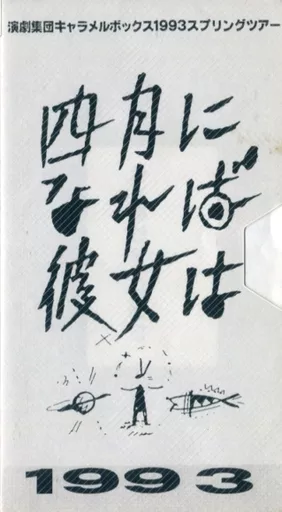 演劇集団キャラメルボックス1993スプリングツアー
四月に
なれば
彼女は
1993